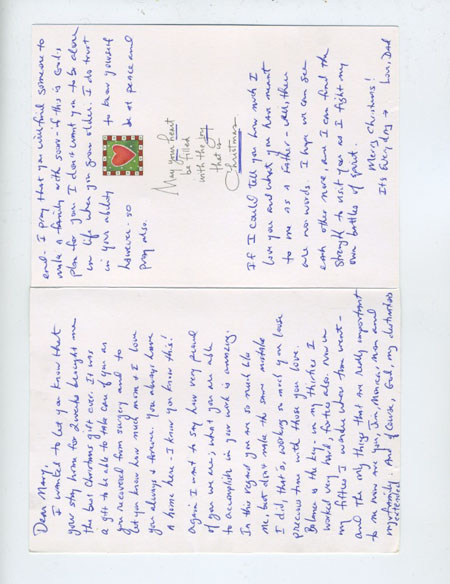 Dear Mary,
I wanted to let you know that
your stay home for 2 weeks brought me
the best Christmas gift ever. It was
a gift to be able to take care of you as
you recovered from surgery and to
let you know how much mom & I love
you always & forever. You always have
a home here - I know you know this!
Again I want to say how very proud
of you we are, what you are able
to accomplish in your work is amazing.
In this regard you are so much like
me, but don't make the same mistake
I did, that is, working so much you loose
precious time with those you love.
Balance is the key. In my thirties I
worked very hard, forties also. Now in
my fifties I wonder where time went -
and the only things that are really important
to me now are you, Jim, Monica, Mom and
my family. And of course, God, my
extended
end. I pray that you will find someone to
make a family with soon - if this is God's
plan for you. I don't want you to be alone
in life when you grow older. I do trust
in your ability to know yourself
however - so be at peace and
pray also.
May your heart
be filled
with the joy
that is
Christmas
If I could tell you how much I
love you and what you have meant
to me as a Father - well, there
are no words. I hope we can see
each other more, and I can find the
strength to visit you as I fight my
own battles of spirit.
Merry Christmas!
It's Every Day → Love, Dad